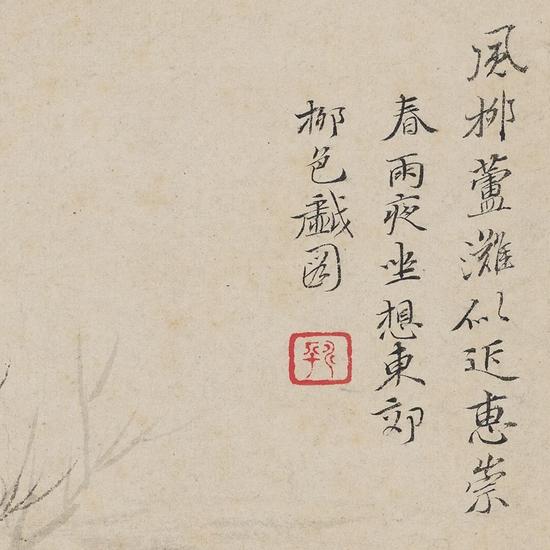 風柳蘆灘似近惠崇
春雨夜坐想東郊
柳色戱圖